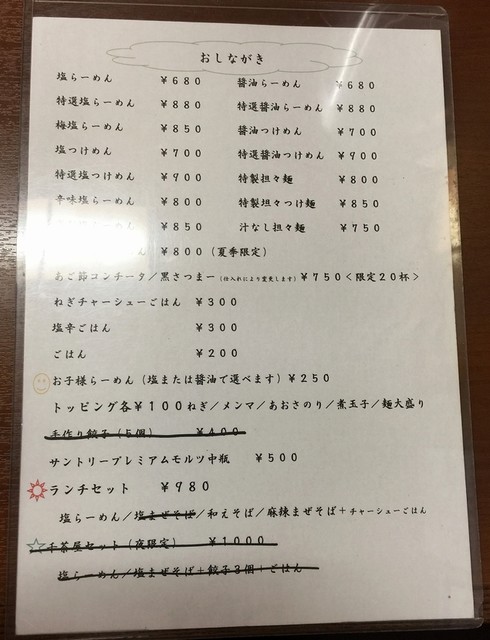 おしながき
塩らーめん ￥６８０ 醤油らーめん ￥６８０
特選塩らーめん ￥８８０ 特選醤油らーめん ￥８８０
梅塩らーめん ￥８５０ 醤油つけめん ￥７００
塩つけめん ￥７００ 特選醤油つけめん ￥９００
特選塩つけめん ￥９００ 特製担々麺 ￥８００
辛味塩らーめん ￥８００ 特製担々つけ麺 ￥８５０
らーめん ￥８５０ 汁なし担々麺 ￥７５０
ん ￥８００（夏季限定）
あご節コンチータ／黒さつまー（仕入れにより変更します）￥７５０＜限定２０杯＞
ねぎチャーシューごはん ￥３００
塩辛ごはん ￥３００
ごはん ￥２００
お子様らーめん（塩または醤油で選べます）￥２５０
トッピング各￥１００ねぎ／メンマ／あおさのり／煮玉子／麺大盛り
手作り餃子（５個） ￥４００
サントリープレミアムモルツ中瓶 ￥５００
ランチセット ￥９８０
塩らーめん／塩まぜそば／和えそば／麻辣まぜそば＋チャーシューごはん
千茶屋セット（夜限定） ￥１０００
塩らーめん／塩まぜそば＋餃子３個＋ごはん